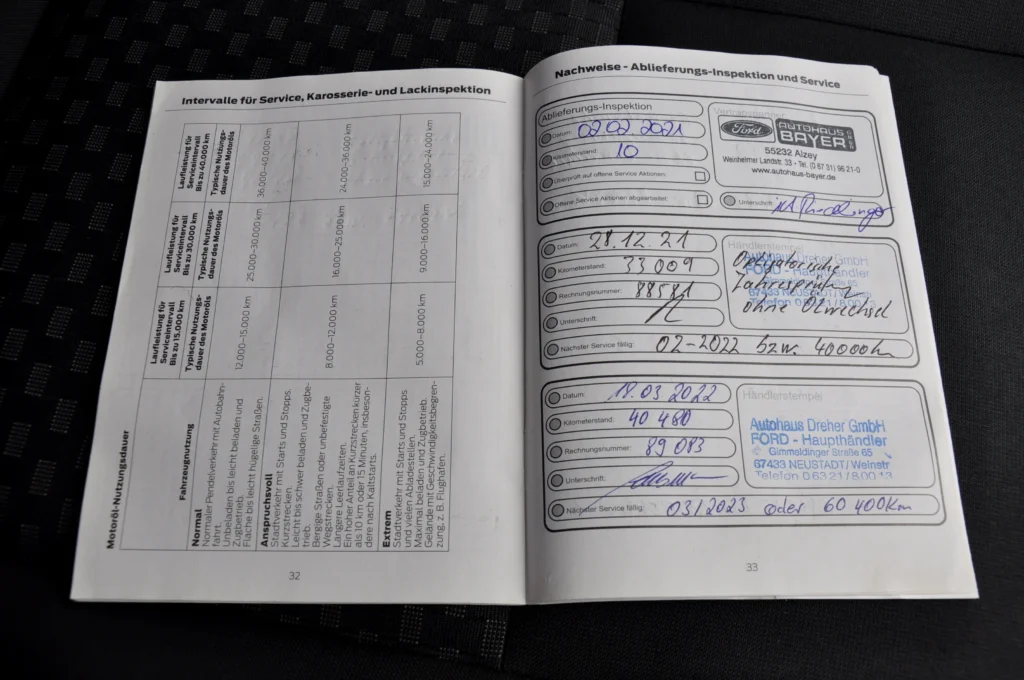 Intervalle für Service, Karosserie- und Lackinspektion
Motoröl-Nutzungsdauer
Fahrzeugnutzung
Laufleistung für Serviceintervall Bis zu 15.000 km
Typische Nutzungsdauer des Motoröls
Laufleistung für Serviceintervall Bis zu 30.000 km
Typische Nutzungsdauer des Motoröls
Laufleistung für Serviceintervall Bis zu 40.000 km
Typische Nutzungsdauer des Motoröls
Normal
Normaler Pendelverkehr mit Autobahnfahrt.
Unbeladen bis leicht beladen und Zugbetrieb.
Flache bis leicht hügelige Straßen.
12.000–15.000 km
25.000–30.000 km
36.000–40.000 km
Anspruchsvoll
Stadtverkehr mit Starts und Stopps.
Kurzstrecken.
Leicht bis schwer beladen und Zugbetrieb.
Bergige Straßen oder unbefestigte Wegstrecken.
Längere Leerlaufzeiten.
Ein hoher Anteil an Kurzstrecken kürzer als 10 km oder 15 Minuten, insbesondere nach Kaltstarts.
8.000–12.000 km
16.000–25.000 km
24.000–36.000 km
Extrem
Stadtverkehr mit Starts und Stopps und vielen Abladestellen.
Maximal beladen und Zugbetrieb.
Gelände mit Geschwindigkeitsbegrenzung, z. B. Flughafen.
5.000–8.000 km
9.000–16.000 km
15.000–24.000 km
32
Nachweise - Ablieferungs-Inspektion und Service
Ablieferungs-Inspektion
Datum: 02.02.2021
Kilometerstand: 10
Überprüft auf offene Service Aktionen:
Offene Service Aktionen abgearbeitet:
Ford
AUTOHAUS BAYER
55232 Alzey
Weinheimer Landstr. 33 - Tel. (0 67 31) 96 21-0
www.autohaus-bayer.de
Unterschrift:
Datum: 28.12.21
Kilometerstand: 33009
Rechnungsnummer: 88581
Unterschrift:
Nächster Service fällig: 02-2022 bzw. 40000km
Händlerstempel
Autohaus Dreher GmbH
FORD - Haupthändler
67433 NEUSTADT/Weinstr
Telefon 0 63 21 / 8 00 13
Obligatorische
Jahresprüfung
ohne Ölwechsel
Datum: 18.03.2022
Kilometerstand: 40 480
Rechnungsnummer: 89083
Unterschrift:
Nächster Service fällig: 03/2023 oder 60 400Km
Händlerstempel
Autohaus Dreher GmbH
FORD - Haupthändler
Gimmeldinger Straße 65
67433 NEUSTADT/Weinstr
Telefon 0 63 21 / 8 00 13
33